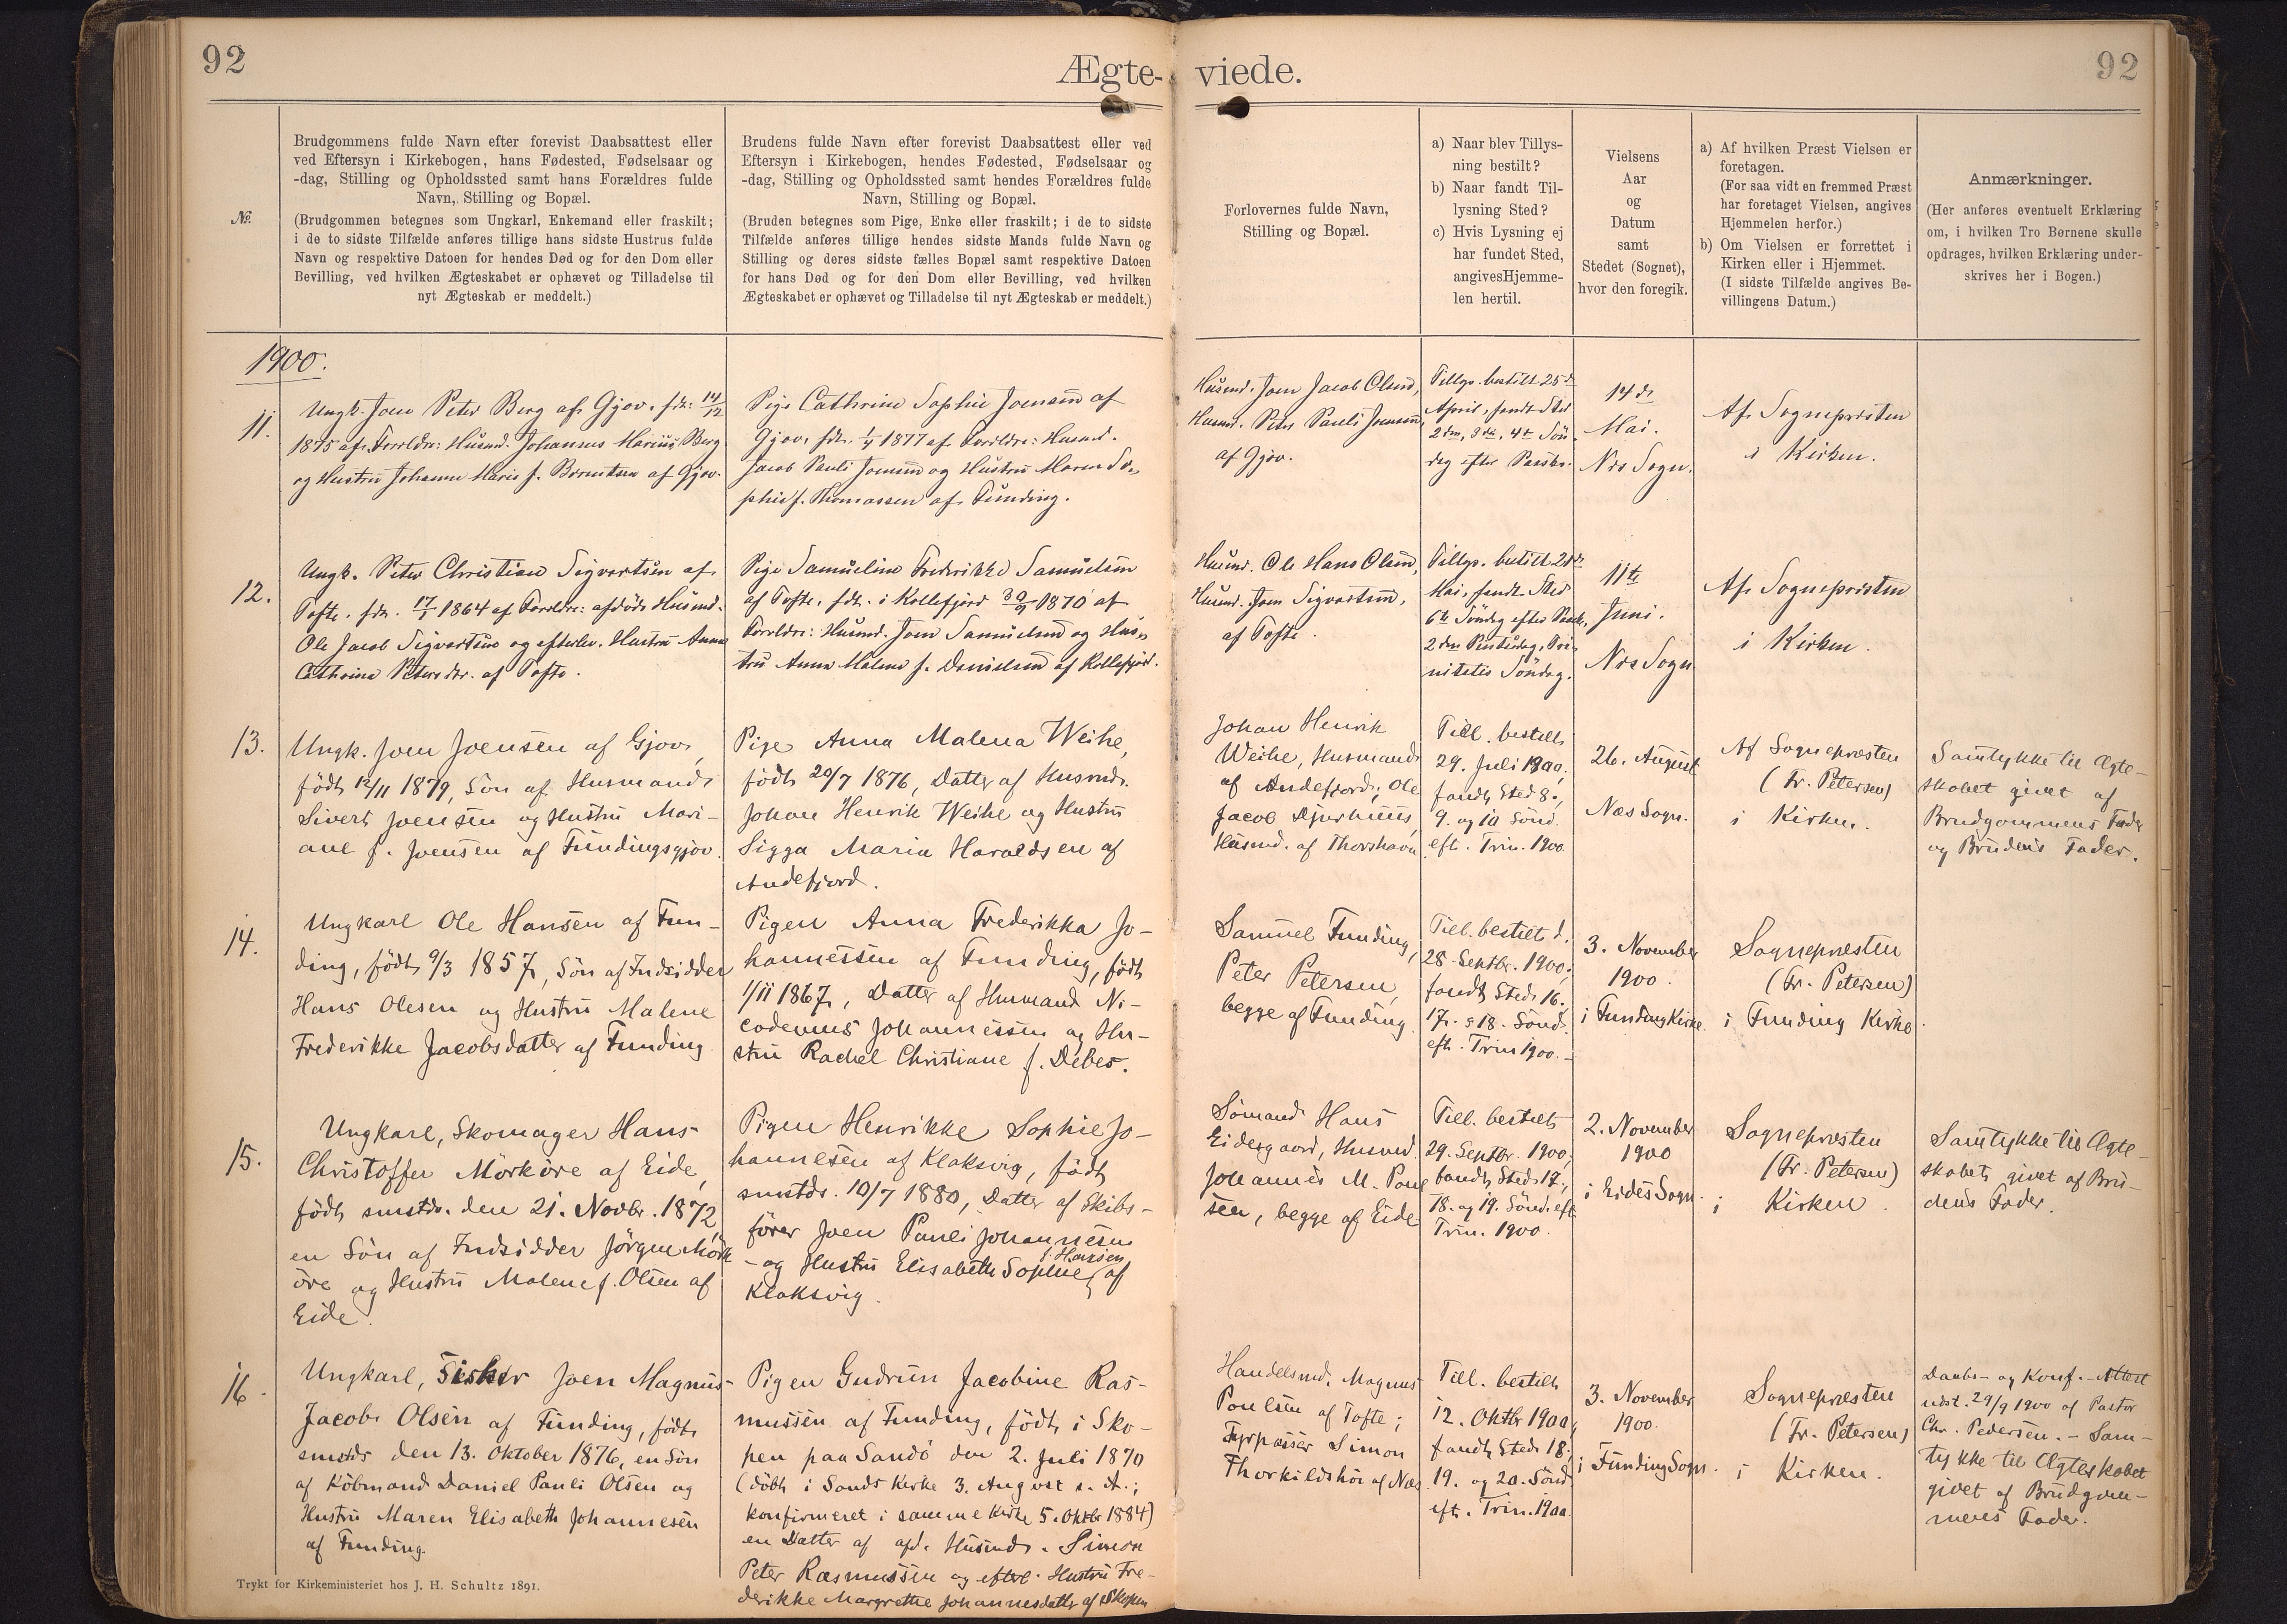 92
Ægte- viede.
92
№
Brudgommens fulde Navn efter forevist Daabsattest eller
ved Eftersyn i Kirkebogen, hans Fødested, Fødselsaar og
-dag, Stilling og Opholdssted samt hans Forældres fulde
Navn, Stilling og Bopæl.
(Brudgommen betegnes som Ungkarl, Enkemand eller fraskilt;
i de to sidste Tilfælde anføres tillige hans sidste Hustrus fulde
Navn og respektive Datoen for hendes Død og for den Dom eller
Bevilling, ved hvilken Ægteskabet er ophævet og Tilladelse til
nyt Ægteskab er meddelt.)
Brudens fulde Navn efter forevist Daabsattest eller ved
Eftersyn i Kirkebogen, hendes Fødested, Fødselsaar og
-dag, Stilling og Opholdssted samt hendes Forældres fulde
Navn, Stilling og Bopæl.
(Bruden betegnes som Pige, Enke eller fraskilt; i de to sidste
Tilfælde anføres tillige hendes sidste Mands fulde Navn og
Stilling og deres sidste fælles Bopæl samt respektive Datoen
for hans Død og for den Dom eller Bevilling, ved hvilken
Ægteskabet er ophævet og Tilladelse til nyt Ægteskab er meddelt.)
Forlovernes fulde Navn,
Stilling og Bopæl.
a) Naar blev Tillys-
ning bestilt?
b) Naar fandt Til-
lysning Sted?
c) Hvis Lysning ej
har fundet Sted,
angives Hjemme-
len hertil.
Vielsens
Aar
og
Datum
samt
Stedet (Sognet),
hvor den foregik.
a) Af hvilken Præst Vielsen er
foretagen.
(For saa vidt en fremmed Præst
har foretaget Vielsen, angives
Hjemmelen herfor.)
b) Om Vielsen er forrettet i
Kirken eller i Hjemmet.
(I sidste Tilfælde angives Be-
villingens Datum.)
Anmærkninger.
(Her anføres eventuelt Erklæring
om, i hvilken Tro Børnene skulle
opdrages, hvilken Erklæring under-
skrives her i Bogen.)
1900.
11.
Ungk. Joen Peter Berg af Gjov. fdt. 14/12
1875 af Forældre: Husmd. Johannes Marius Berg
og Hustru Johanne Marie f. Berentsen af Gjov.
Pige Cathrine Sophie Joensen af
Gjov, fdt. 1877 af Forældre: Husmd.
Jacob Pauli Joensen og Hustru Maren So-
phie f. Thomassen af Funding.
Husmd. Joen Jacob Olsen,
Husmd. Peter Pauli Joensen,
af Gjov.
Tillys. bestilt 25de
April, fandt Sted
2den, 3die, 4de Søn-
dag efter Paaske.
14de
Mai.
Næs Sogn.
Af Sognepræsten
i Kirken.
12.
Ungk. Peter Christian Sigvartsen af
Tofte. fdt. 1864 af Forældre: afdøde Husmd.
Ole Jacob Sigvartsen og efterlev. Hustru Anna
Cathrina Petersdtr. af Tofte.
Pige Samueline Frederikke Samuelsen
af Tofte, fdt. i Kollefjord 30/9 1870 af
Forældre: Husmd. Joen Samuelsen og Hus-
tru Anna Malene f. Danielsen af Kollefjord.
Husmd. Ole Hans Olsen,
Husmd. Joen Sigvartsen,
af Tofte.
Tillys. bestilt
Mai, fandt Sted
6te Søndag efter Paask.,
2den Pintsedag, Tri-
nitatis Søndag.
11te
Juni.
Næs Sogn
Af Sognepræsten
i Kirken.
13.
Ungk. Joen Joensen af Gjov,
født 12/11 1879, Søn af Husmand
Sivert Joensen og Hustru Mari-
ane f. Joensen af Fundingsgjov.
Pige Anna Malena Weihe,
født 20/7 1876, Datter af Husmd.
Johan Henrik Weihe og Hustru
Sigga Maria Haraldsen af
Andefjord.
Johan Henrik
Weihe, Husmand
af Andefjord; Ole
Jacob Djurhuus,
Husmd. af Thorshavn
Till. bestilt
29. Juli 1900,
fandt Sted 8.,
9. og 10 Sønd.
eft. Trin. 1900.
26. August
Næs Sogn.
Af Sognepræsten
(Fr. Petersen)
i Kirken.
Samtykke til Ægte-
skabet givet af
Brudgommens Fader
og Brudens Fader.
14.
Ungkarl Ole Hansen af Fun-
ding, født 9/3 1857, Søn af Indsidder
Hans Olesen og Hustru Malene
Frederikke Jacobsdatter af Funding
Pigen Anna Frederikka Jo-
hannessen af Funding, født
1/11 1867, Datter af Husmand Ni-
codemus Johannessen og Hu-
stru Rachel Christiane f. Debes.
Samuel Funding,
Peter Petersen,
begge af Funding.
Till. bestilt d.
28. Septbr. 1900;
fandt Sted 16.
17. & 18. Sønd.
eft. Trin 1900.-
3. November
1900.
i Funding Kirke.
Sognepræsten
(Fr. Petersen)
i Funding Kirke.
15.
Ungkarl, Skomager Hans
Christoffer Mörköre af Eide,
født smstds. den 21. Novbr. 1872,
en Søn af Indsidder Jörgen Mörk-
öre og Hustru Malene f. Olsen af
Eide.
Pigen Henrikke Sophie Jo-
hannesen af Klaksvig, født
smstds. 10/7 1880, Datter af Skibs-
fører Joen Pauli Johannesen
- og Hustru Elisabeth Sophie f. Hansen af
Klaksvig.
Sømand Hans
Eidesgaard, Husmd.
Johannes M. Poul-
sen, begge af Eide
Till. bestilt
29. Septbr. 1900;
fandt Sted 17.,
18. og 19. Sønd. eft.
Trin. 1900.
2. November
1900
i Eides Sogn.
Sognepræsten
(Fr. Petersen)
i Kirken.
Samtykke til Ægte-
skabet givet af Bru-
dens Fader.
16.
Ungkarl, Fisker Joen Magnus
Jacob Olsen af Funding, født
smstds den 13. Oktober 1876, en Søn
af Købmand Daniel Pauli Olsen og
Hustru Maren Elisabeth Johannesen
af Funding.
Pigen Gudrun Jacobine Ras-
mussen af Funding, født i Sko-
pen paa Sandö den 2. Juli 1870
(døbt i Sands Kirke 3. August s. A.;
konfirmeret i samme Kirke 5. Oktbr 1884)
en Datter af afd. Husmd. Simon
Peter Rasmussen og efterl. Hustru Fre-
derikke Margrethe Johannesdatter af Skopen
Handelsmd. Magnus
Poulsen af Tofte;
Fyrpasser Simon
Thorkildshöi af Næs
Till. bestilt
12. Oktbr 1900,
fandt Sted 18.,
19. og 20. Sønd.
eft. Trin. 1900.
3. November
1900.
i Funding Sogn.
Sognepræsten
(Fr. Petersen)
i Kirken.
Daabs- og Konf.-Attest
udst. 29/9 1900 af Pastor
Chr. Pedersen. - Sam-
tykke til Ægteskabet
givet af Brudgom-
mens Fader.
Trykt for Kirkeministeriet hos J. H. Schultz 1891.